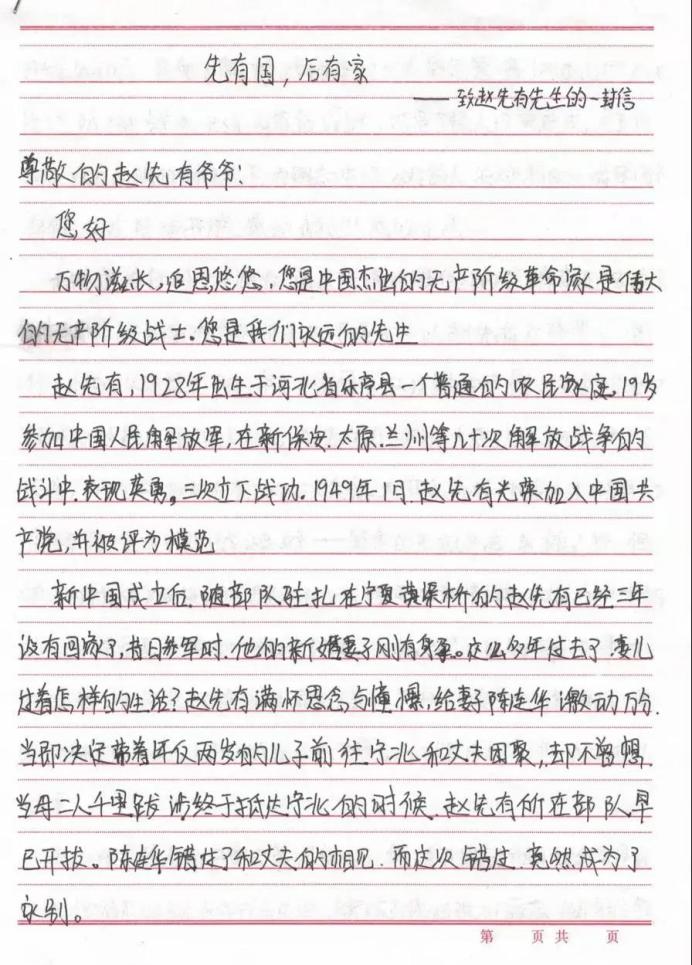 先有国，后有家
——致赵先有先生的一封信
尊敬的赵先有爷爷：
您好
万物滋长，追思悠悠，您是中国杰出的无产阶级革命家是伟大
的无产阶级战士。您是我们永远的先生
赵先有，1928年出生于河北省乐亭县一个普通的农民家庭。19岁
参加中国人民解放军，在新保安.太原.兰州等几十次解放战争的
战斗中.表现英勇。三次立下战功.1949年1月.赵先有光荣加入中国共
产党，并被评为模范
新中国成立后.随部队驻扎在宁夏黄渠桥的赵先有已经三年
没有回家了，昔日参军时.他的新婚妻子刚有身孕。这么多年过去了.妻儿
过着怎样的生活？赵先有满怀思念与憧憬，给妻子陈连华激动万分.
当即决定带着年仅两岁的儿子前往宁北和丈夫团聚，却不曾想.
当母二人千里跋涉终于抵达宁北的时候.赵先有所在部队早
已开拔。陈连华错过了和丈夫的相见.而这次错过.竟然成为了
永别。
第 页 共 页